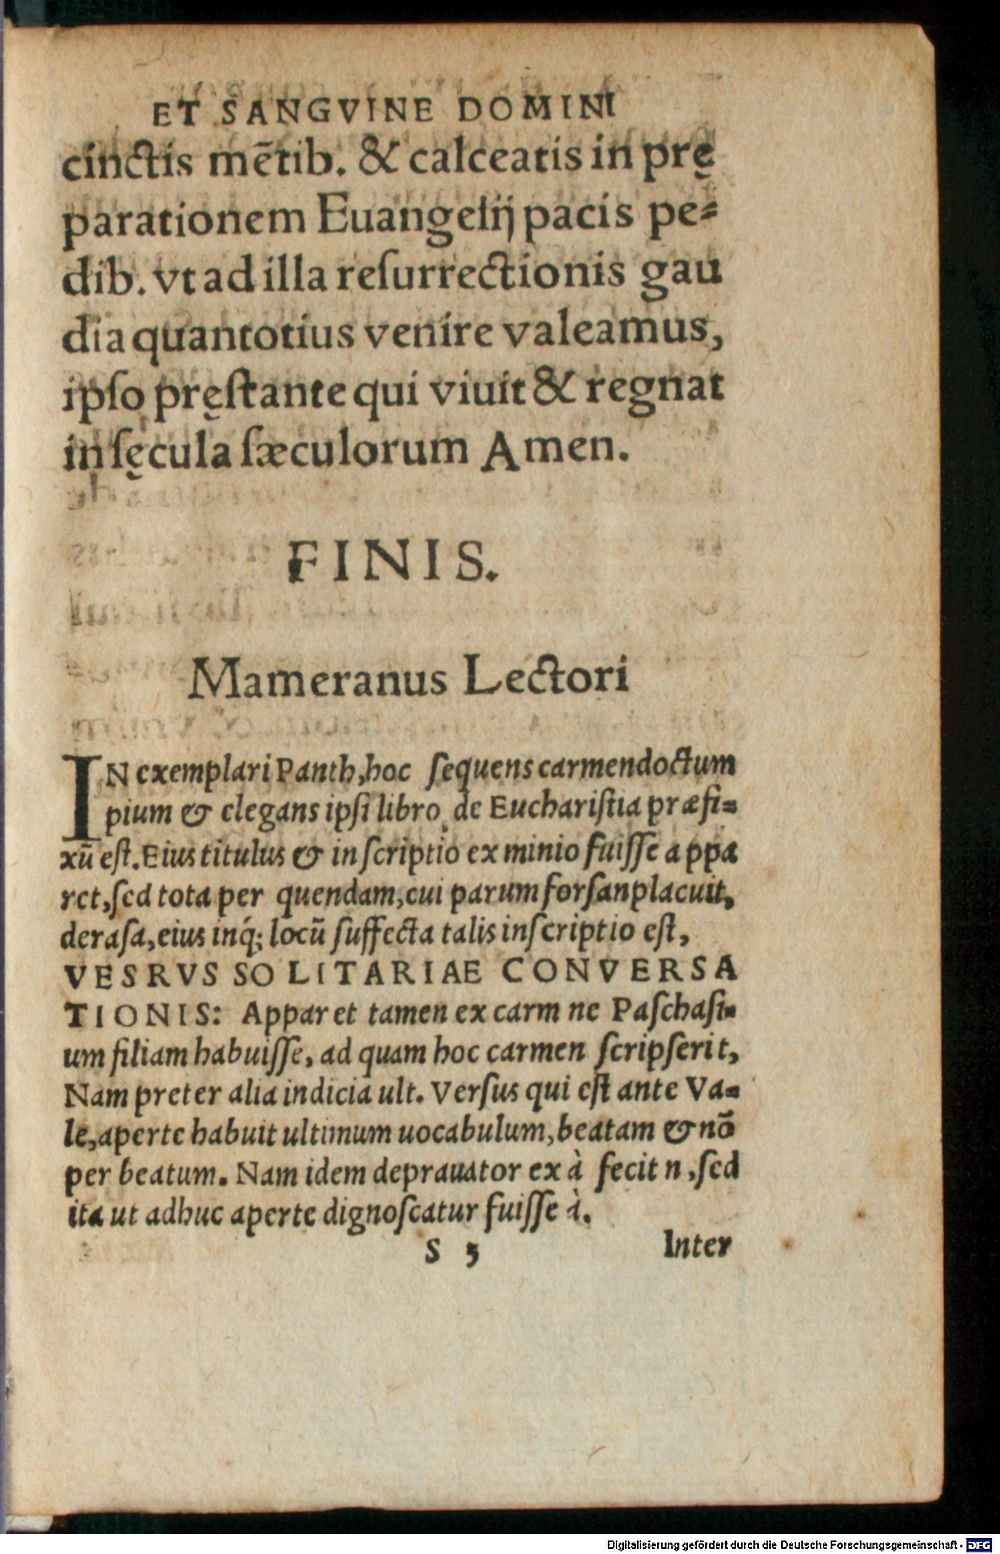 ET SANGVINE DOMINI
cinctis mẽtib. & calceatis in prę
parationem Euangelij pacis pe⸗
dib. vt ad illa reſurrectionis gau
dia quantotius venire valeamus,
ipſo pręſtante qui viuit & regnat
in ſęcula ſæculorum Amen.
FINIS.
Mameranus Lectori
IN exemplari Panth, hoc ſequens carmen doctum
pium & elegans ipſi libro de Euchariſtia præfi⸗
xũ eſt. Eius titulus & inſcriptio ex minio fuiſſe appa
ret, ſed tota per quendam, cui parum forſan placuit,
deraſa, eius inq́; locũ ſuffecta talis inſcriptio eſt,
VESRVS SOLITARIAE CONVERSA
TIONIS: Apparet tamen ex carm ne Paſchaſi⸗
um filiam habuiſſe, ad quam hoc carmen ſcripſerit,
Nam preter alia indicia ult. Verſus qui eſt ante Va⸗
le, aperte habuit ultimum uocabulum, beatam & nõ
per beatum. Nam idem deprauator ex à fecit n, ſed
ita ut adhuc aperte dignoſcatur fuiſſe à.
S 5 Inter
Digitalisierung gefördert durch die Deutsche Forschungsgemeinschaft - DFG